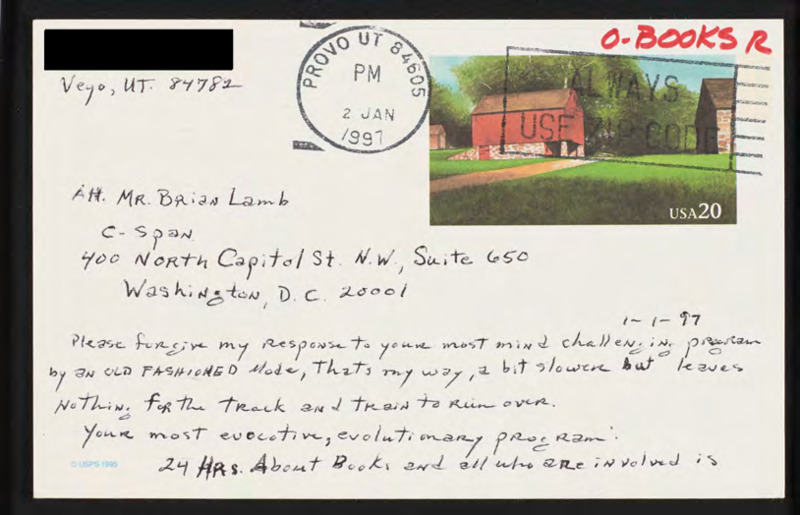 O-BOOKS R
Veyo, UT. 84782
PROVO UT 84605
PM
2 JAN
1997
ALWAYS
USE ZIP CODE
USA20
Att. MR. BRIAN Lamb
C-SPAN
400 NORTH Capitol St. N.W., Suite 650
WASHINGTON, D.C. 20001
1-1-97
Please forgive my response to your most mind challenging program
by an OLD FASHIONED Mode, that's my way, a bit slower but leaves
Nothing for the track and train to run over.
Your most evocative, evolutionary program:
24 HRS. About Books and all who are involved is
© USPS 1995